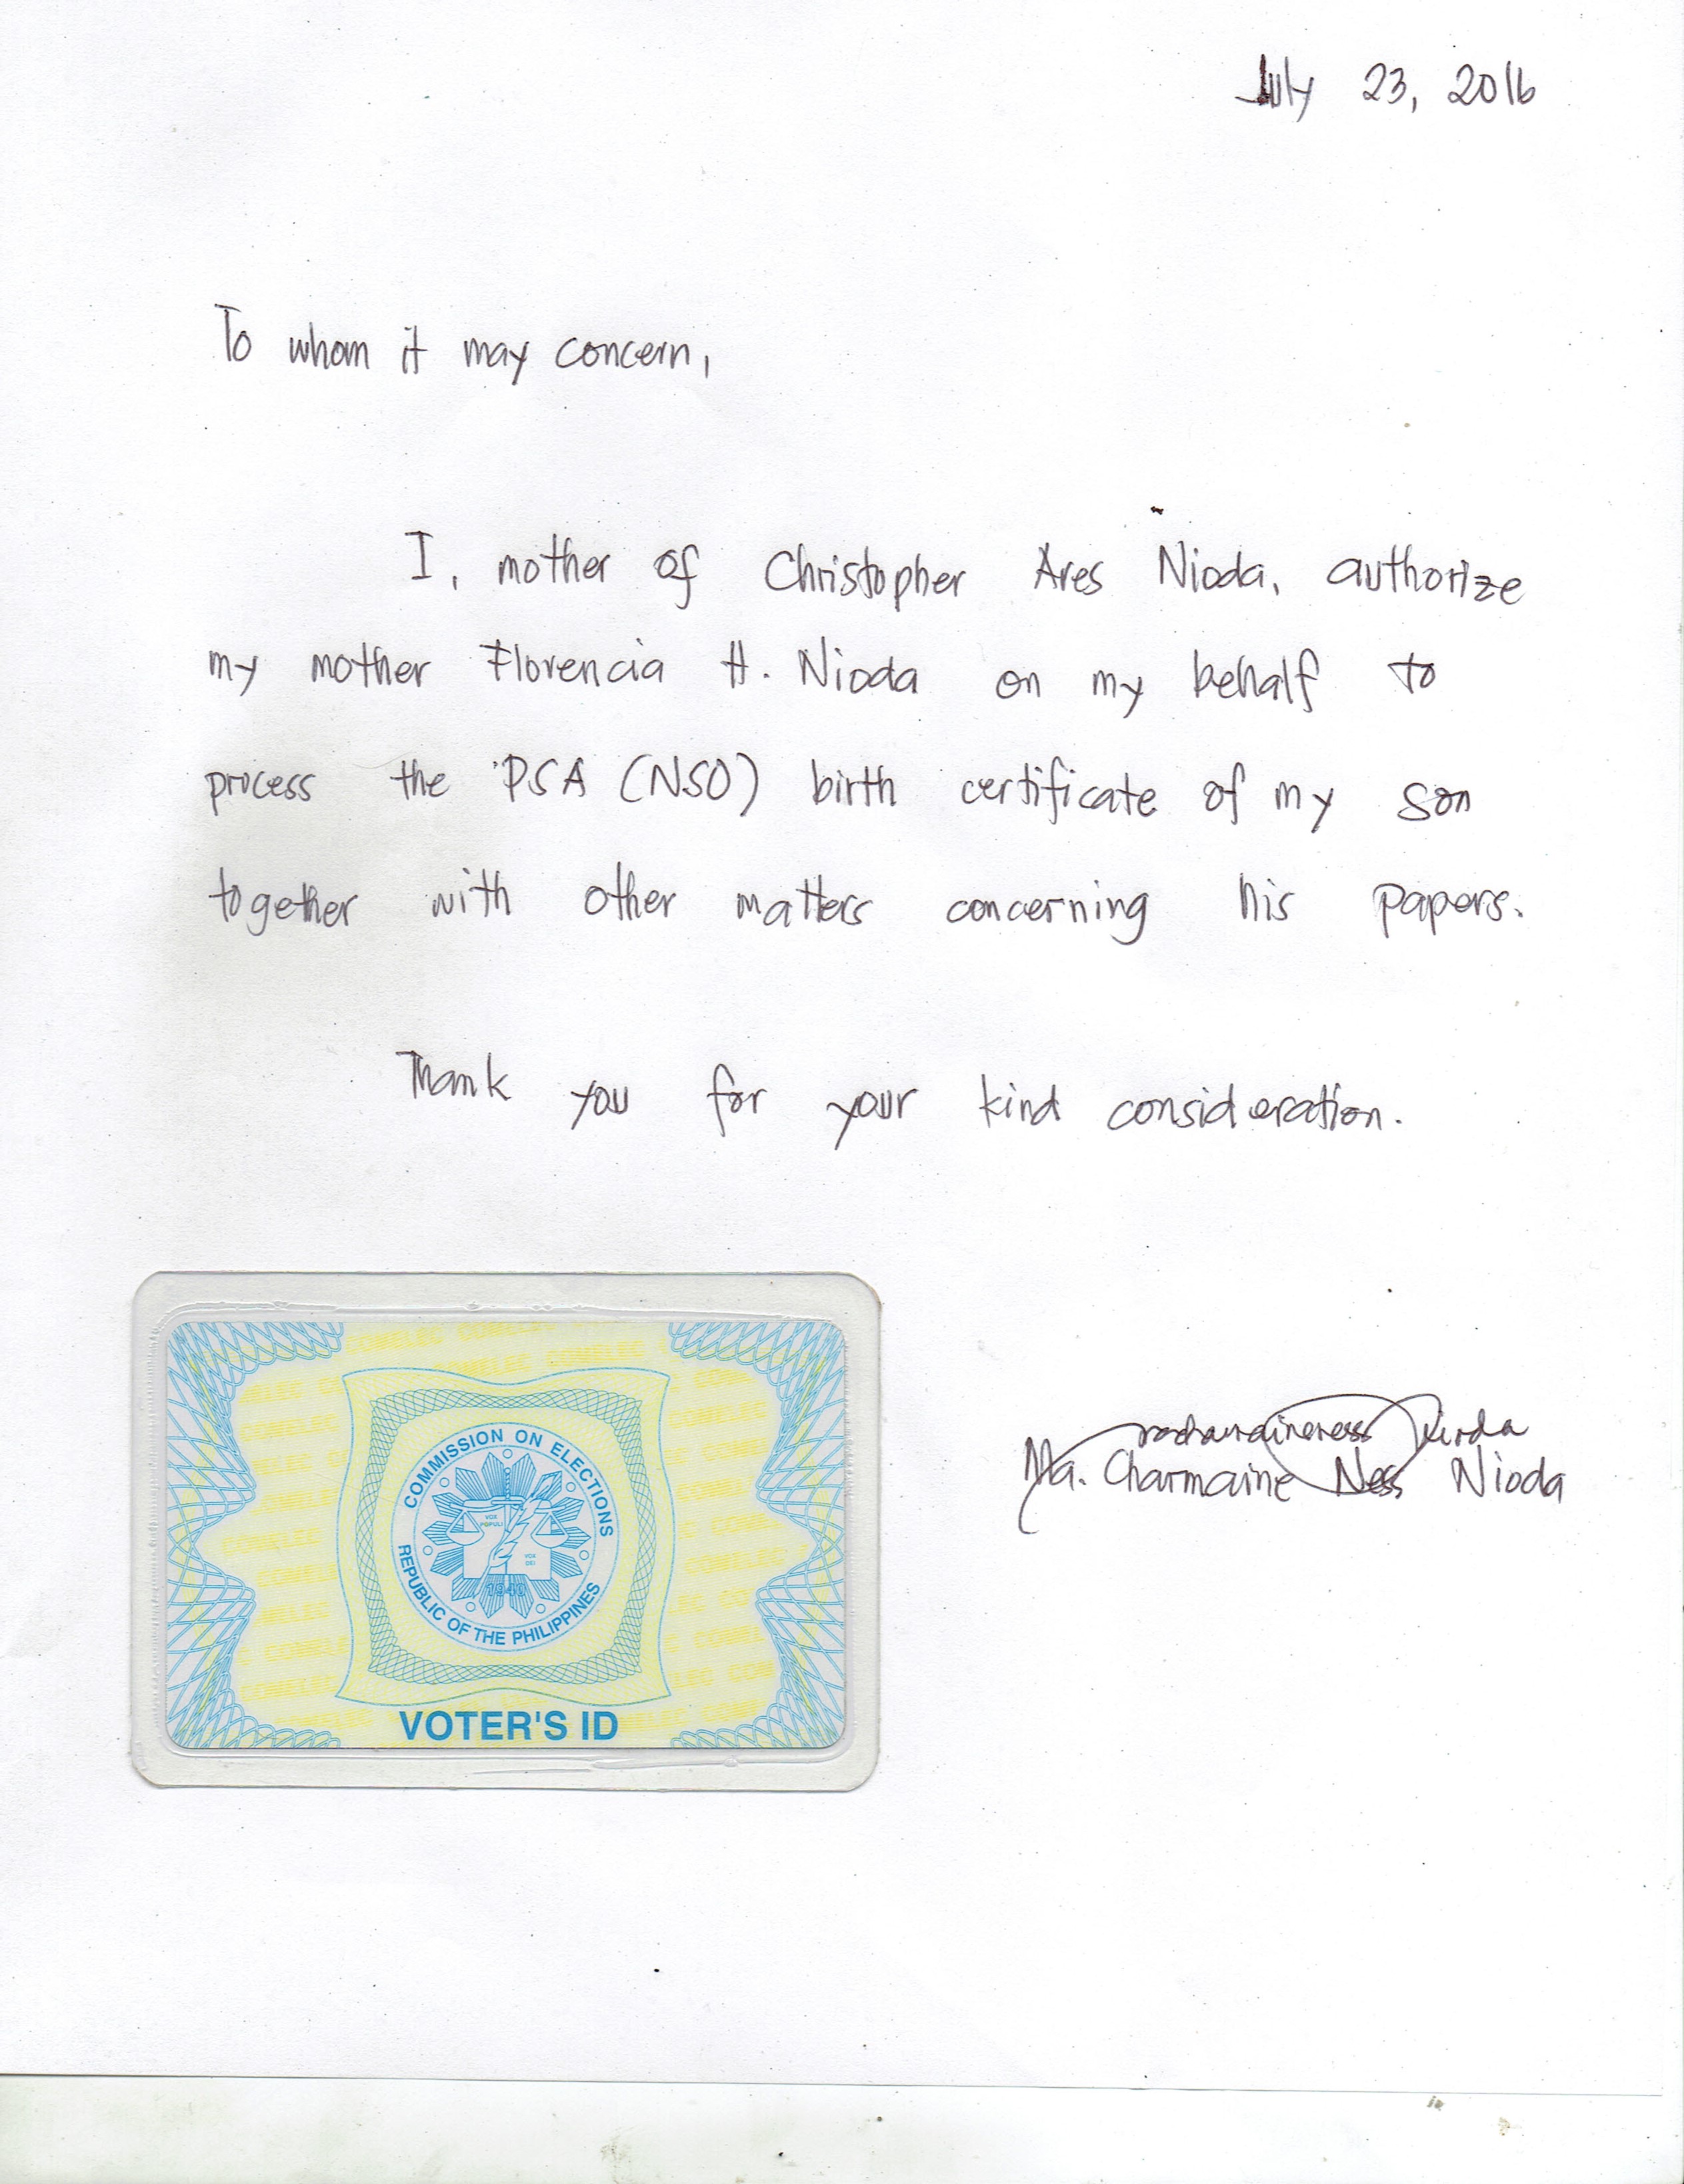 July 23, 2016
To whom it may concern,
I, mother of Christopher Ares Nioda, authorize
my mother Florencia H. Nioda on my behalf to
process the PSA (NSO) birth certificate of my son
together with other matters concerning his papers.
Thank you for your kind consideration.
Ma. Charmaine Ness Nioda
COMMISSION ON ELECTIONS
VOX POPULI
VOX DEI
1940
REPUBLIC OF THE PHILIPPINES
VOTER'S ID